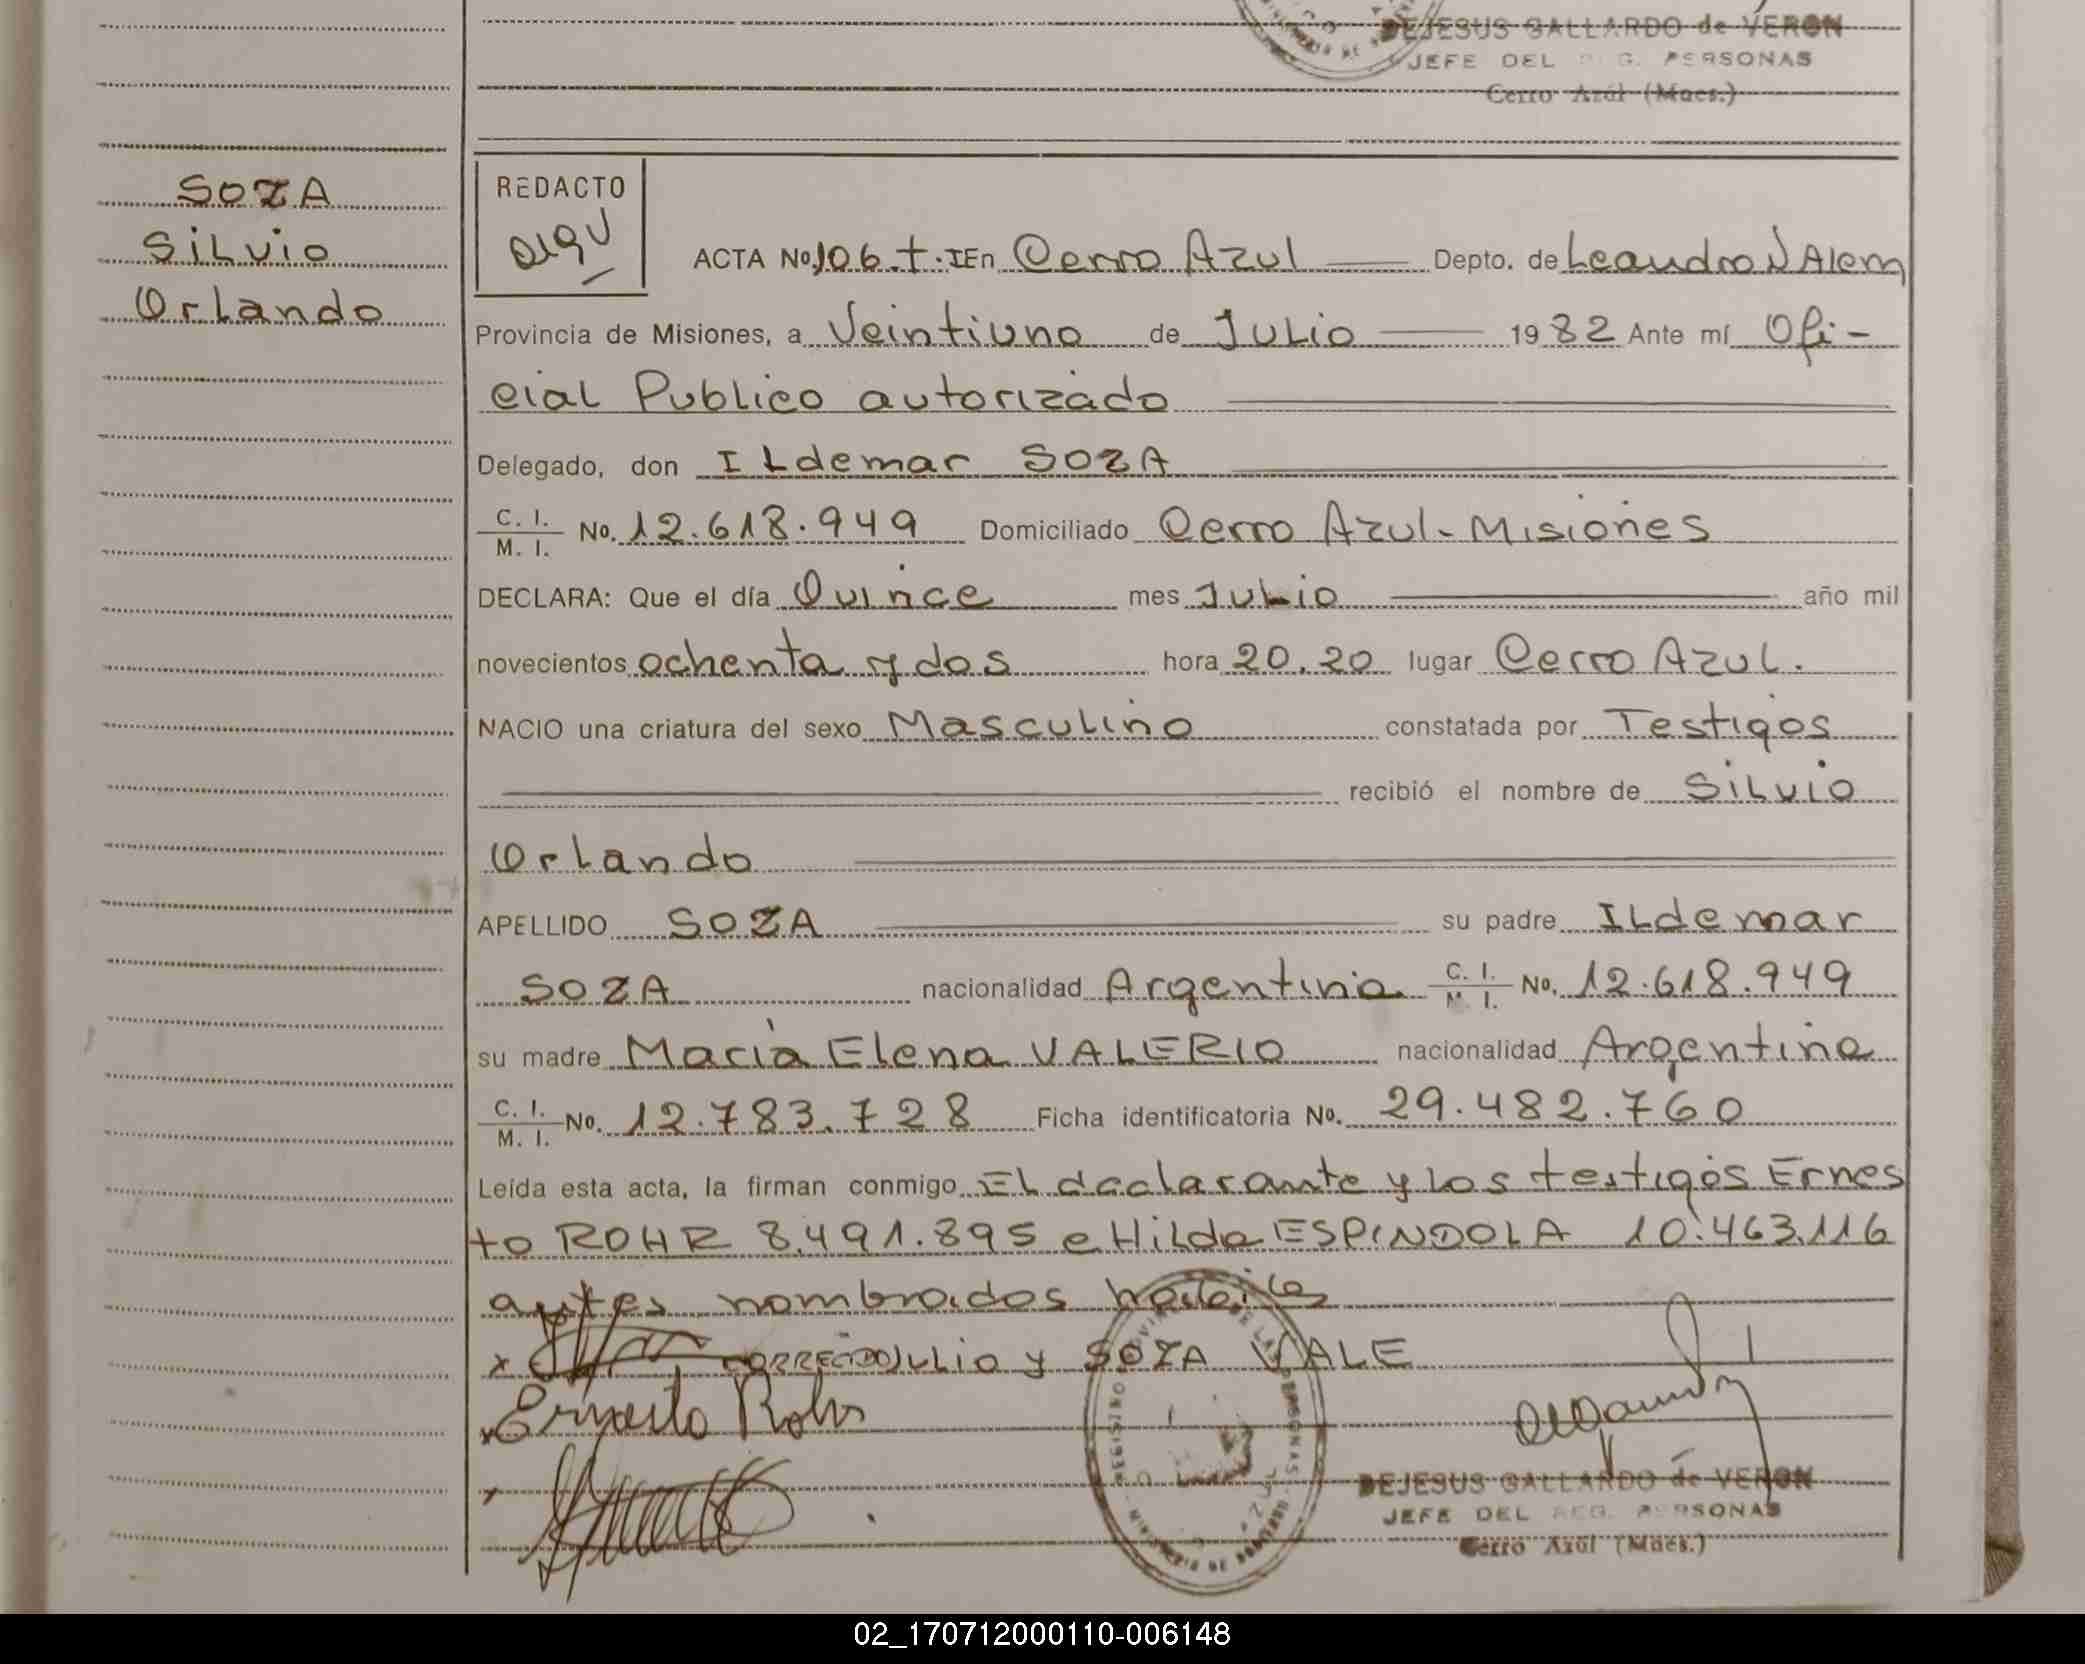 DEJESUS GALLARDO de VERON
JEFE DEL REG. PERSONAS
Cerro Azul (Mnes.)
SOZA
Silvio
Orlando
REDACTO
ACTA No. 106. T. I En Cerro Azul Depto. de Leandro N Alem
Provincia de Misiones, a Veintiuno de Julio 1982 Ante mí Ofi-
cial Publico autorizado
Delegado, don Ildemar SOZA
C. I. M. I. No. 12.618.949 Domiciliado Cerro Azul - Misiones
DECLARA: Que el día Quince mes Julio año mil
novecientos ochenta y dos hora 20.20 lugar Cerro Azul.
NACIO una criatura del sexo Masculino constatada por Testigos
recibió el nombre de Silvio
Orlando
APELLIDO SOZA su padre Ildemar
SOZA nacionalidad Argentina C. I. M. I. No. 12.618.949
su madre María Elena VALERIO nacionalidad Argentina
C. I. M. I. No. 12.783.728 Ficha identificatoria No. 29.482.760
Leída esta acta, la firman conmigo El declarante y los testigos Ernes
to ROHR 8.491.895 e Hilda ESPINDOLA 10.463.116
antes nombrados habiles
x CORREGIDO Julio y SOZA VALE
x Ernesto Rohr
x
DEJESUS GALLARDO de VERON
JEFE DEL REG. PERSONAS
Cerro Azul (Mnes.)
02_170712000110-006148